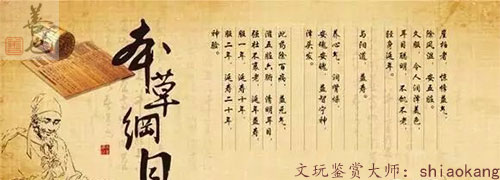 崖柏者，惊悸益气，
除风湿，安五脏。
久服，令人润泽美色，
耳目聪明，不饥不老，
轻身延年。
与阳道，益寿。
养心气，润肾燥，
安魂安魄，益智宁神
泽头发。
此药除百病，益元气，
滋五脏六腑，清明耳目，
强壮不衰老，延年益寿，
服一年，延寿十年，
服二年，延寿二十年，
神验。
本草綱目
文玩鉴赏大师：shiaokang